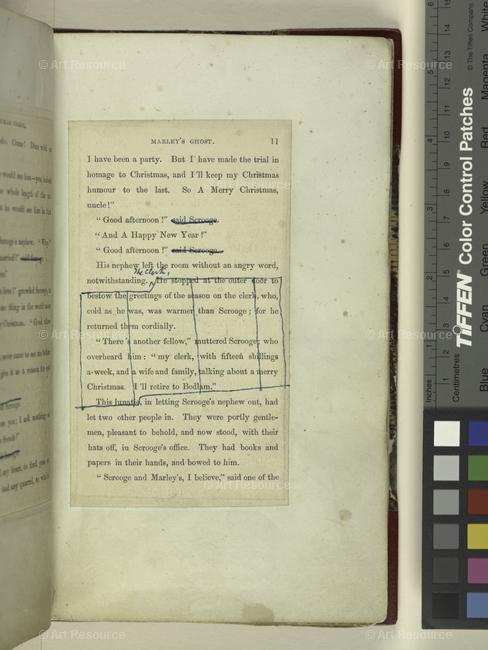 MARLEY'S GHOST. 11
I have been a party. But I have made the trial in
homage to Christmas, and I'll keep my Christmas
humour to the last. So A Merry Christmas,
uncle!"
"Good afternoon!" said Scrooge.
"And A Happy New Year!"
"Good afternoon!" said Scrooge.
His nephew left the room without an angry word,
The clerk,
notwithstanding. He stopped at the outer door to
bestow the greetings of the season on the clerk, who,
cold as he was, was warmer than Scrooge; for he
returned them cordially.
"There's another fellow," muttered Scrooge; who
overheard him: "my clerk, with fifteen shillings
a-week, and a wife and family, talking about a merry
Christmas. I'll retire to Bedlam."
This lunatic, in letting Scrooge's nephew out, had
let two other people in. They were portly gentle-
men, pleasant to behold, and now stood, with their
hats off, in Scrooge's office. They had books and
papers in their hands, and bowed to him.
"Scrooge and Marley's, I believe," said one of the
TIFFEN® Color Control Patches
© The Tiffen Company,
Inches
Centimetres
Blue
Cyan
Green
Yellow
Red
Magenta
White
© Art Resource
© Art Resource
© Art Resource
© Art Resource